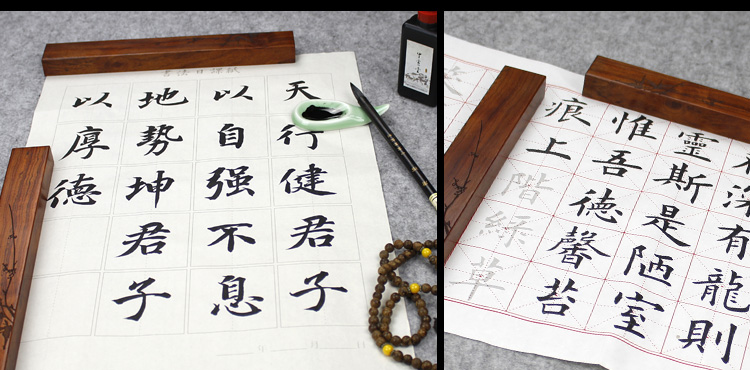 書法日課紙
天行健君子
以自强不息
地勢坤君子
以厚德
深有龍則
靈斯是陋室
惟吾德馨苔
痕上階綠草